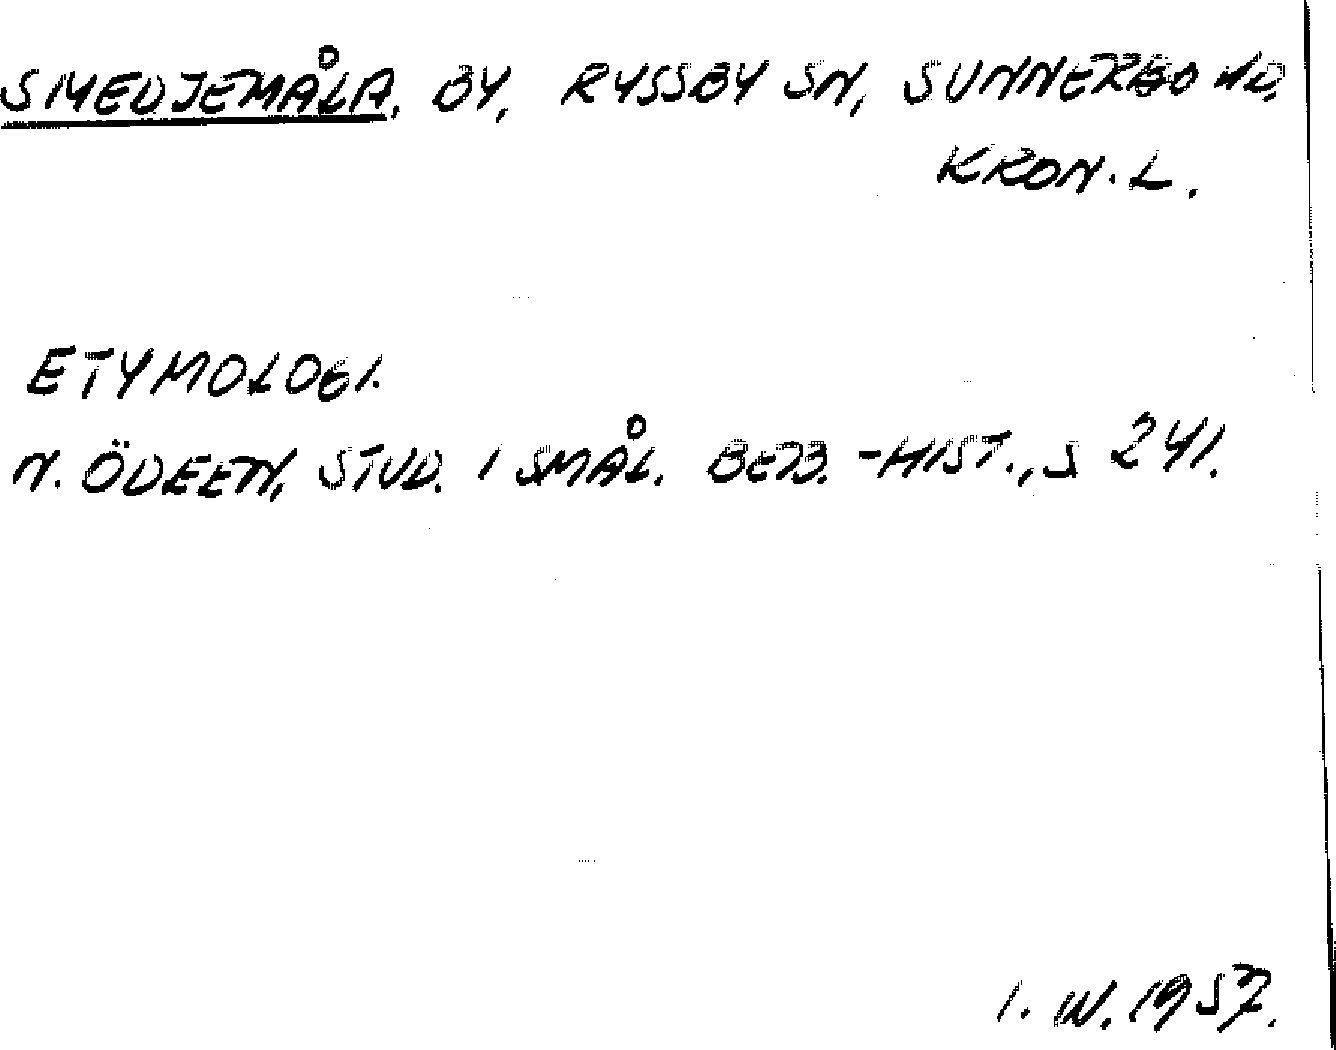 SMEDJEMÅLA, BY, RYSSBY SN, SUNNERBO HD,
KRON. L.
ETYMOLOGI.
N. ÖDEEN, STUD. I SMÅL. BEB. -HIST., S 241.
1. IV. 1957.